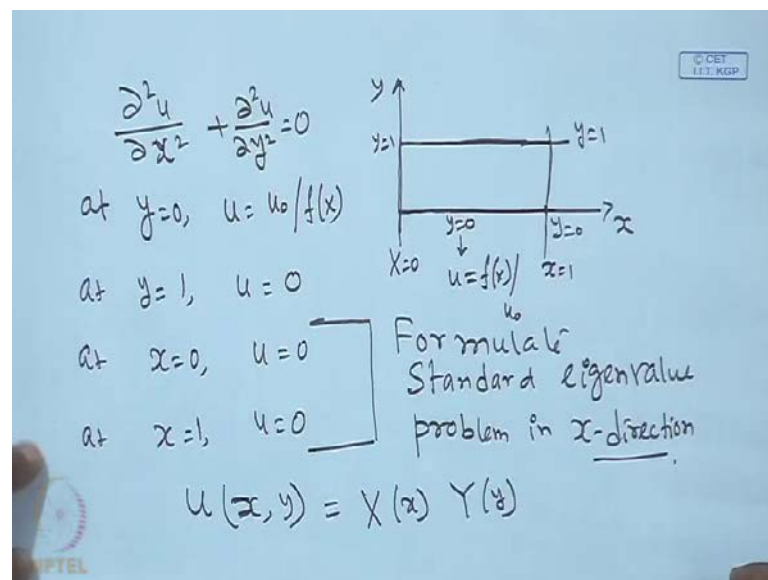 © CET
I.I.T. KGP
∂²u/∂x² + ∂²u/∂y² = 0
at y=0, u= u₀/f(x)
at y=1, u=0
at x=0, u=0
at x=1, u=0
y
y=1
y=1
y=0
y=0
x
X=0
u=f(x)/u₀
x=1
Formulate
Standard eigenvalue
problem in x-direction
U(x,y) = X(x) Y(y)